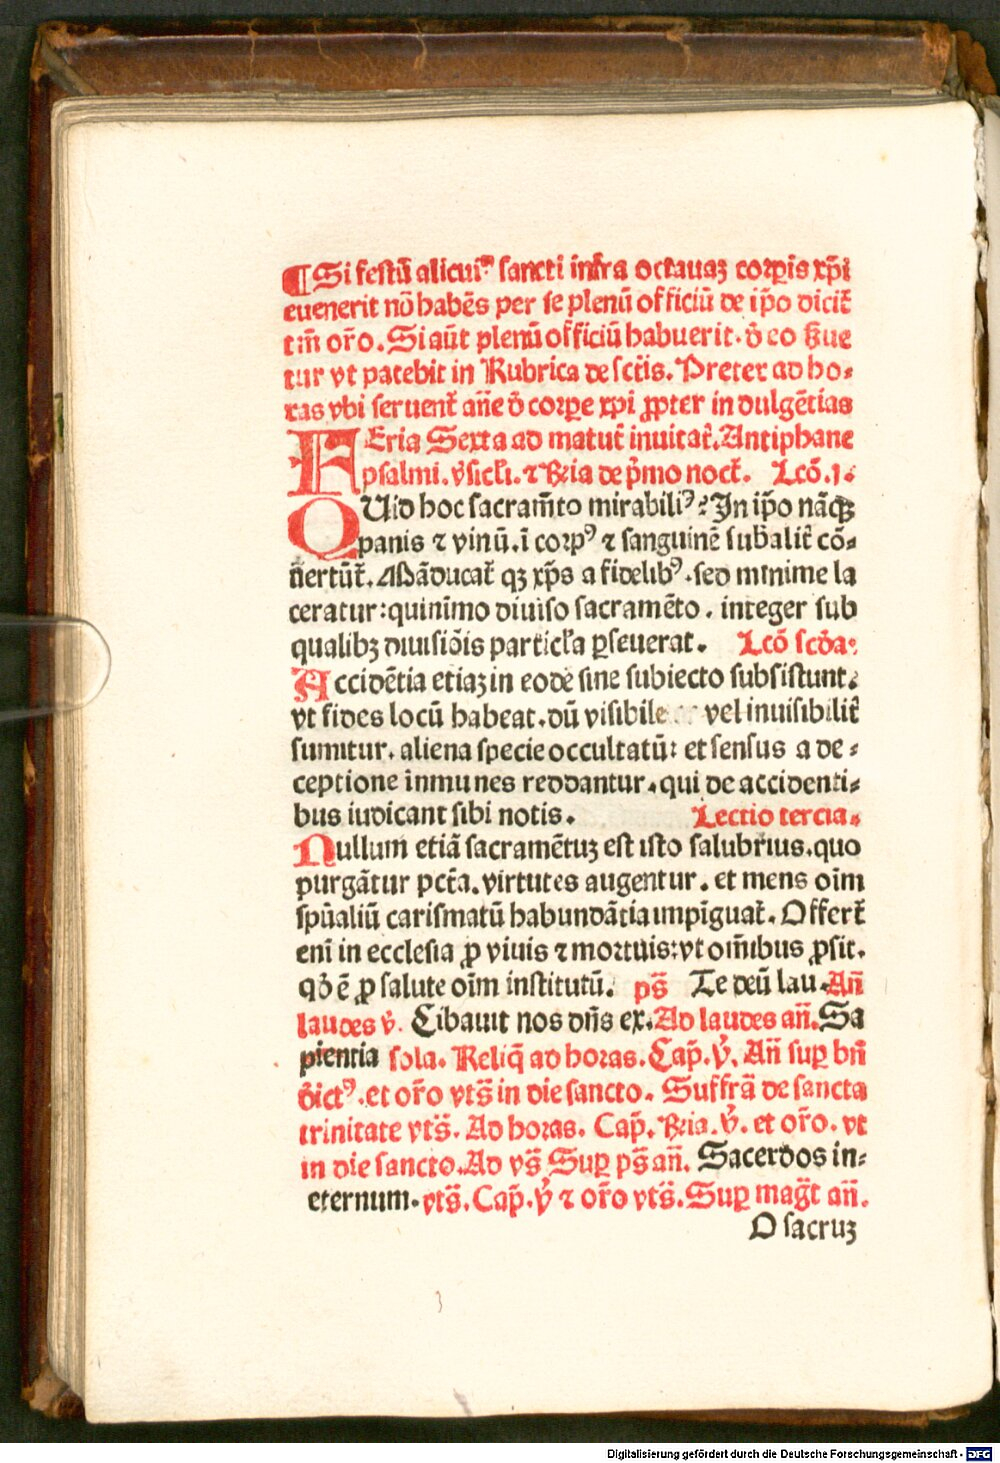 ¶Si festū alicui⁹ sancti infra octauaꝫ corꝑis xp̄i
euenerit nō habēs per se plenū officiū de ip̄o dicit̄
tm̄ or̄o. Si aūt plenū officiū habuerit. d̄ eo
tur vt patebit in Rubrica de sctīs. Preter ad ho⸗
ras vbi seruent̄ an̄e d̄ corꝑe xp̄i ꝓpter indulgētias
FEria Sexta ad matut̄ inuitat̄. Antiphane
psalmi. v̄sicl̄i. ⁊ Rn̄ia de p̄mo noct̄. Lcō.1.
QUid hoc sacram̄to mirabili⁹? In ip̄o nāqꝫ
panis ⁊ vinū. ī corp⁹ ⁊ sanguinē sub̄alit̄ cō⸗
ūertūt̄. Māducat̄ qꝫ xp̄s a fidelib⁹. sed minime la
ceratur: quinīmo diuiso sacramēto. integer sub
qualibꝫ diuisiōis particl̄a ꝑseuerat. Lcō scd̄a:
Accidētia etiaꝫ in eodē sine subiecto subsistunt.
vt fides locū habeat. dū visibile vel inuisibilit̄
sumitur. aliena specie occultatū: et sensus a de⸗
ceptione inmunes reddantur. qui de accidenti⸗
bus iudicant sibi notis. Lectio tercia.
Nullum etiā sacramētuꝫ est isto salubrius. quo
purgātur pct̄a. virtutes augentur. et mens oīm
sp̄ualiū carismatū habundātia impīguat̄. Offert̄
enī in ecclesia ꝓ viuis ⁊ mortuis: vt om̄ibus ꝓsit.
qd̄ ē ꝓ salute oīm institutū. ps̄ Te deū lau. An̄
laudes v̄. Cibauit nos dn̄s ex. Ad laudes an̄. Sa
pientia sola. Reliq̄ ad horas. Cap̄. v̄. An̄ suꝑ bn̄
dict⁹. et or̄o vts̄ in die sancto. Suffrā de sancta
trinitate vts̄. Ad horas. Cap̄. Rn̄ia. v̄. et or̄o. vt
in die sancto. Ad vs̄ Suꝑ ps̄ an̄. Sacerdos in⸗
eternum. vts̄. Cap̄. v̄ ⁊ or̄o vts̄. Suꝑ maḡt an̄.
O sacruꝫ
Digitalisierung gefördert durch die Deutsche Forschungsgemeinschaft - DFG